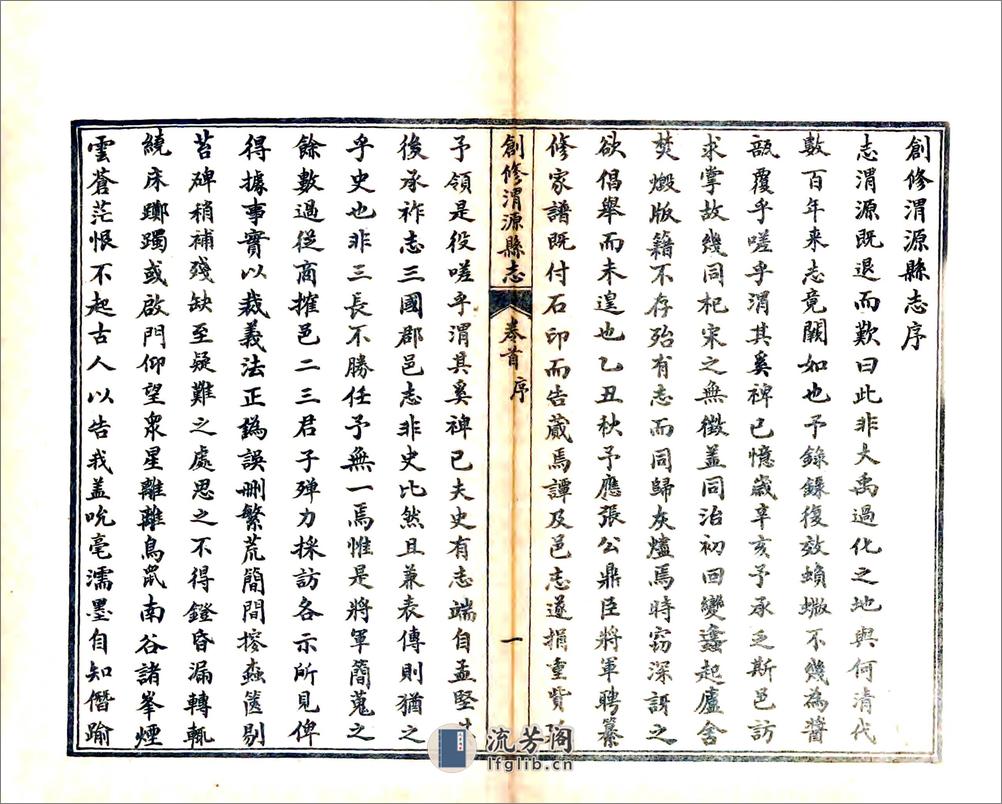 創修渭源縣志序
志渭源既退而歎曰此非大禹過化之地與何清代
數百年来志竟闕如也予錄錄復效蝜蝂不幾為醬
瓿覆乎嗟乎渭其奚裨已憶歲辛亥予承乏斯邑訪
求掌故幾同杞宋之無徵盖同治初回變蠭起廬舍
焚燬版籍不存殆有志而同歸灰燼焉時窃深訝之
欲倡舉而未遑也乙丑秋予應張公鼎臣將軍聘纂
修家譜既付石印而告蕆焉譚及邑志遂捐重貲
創修渭源縣志
卷首 序
一
予領是役嗟乎渭其奚裨已夫史有志端自孟堅
後承祚志三國郡邑志非史比然且兼表傳則猶之
乎史也非三長不勝任予無一焉惟是將軍簡蒐之
餘數過従商搉邑二三君子殫力採訪各示所見俾
得據事實以裁義法正譌誤删繁荒簡間摉蠧篋剔
苔碑稍補殘缺至疑難之處思之不得鐙昏漏轉輒
繞床躑躅或啟門仰望衆星離離鳥鼠南谷諸峯煙
雲蒼茫恨不起古人以告我盖吮毫濡墨自知僭踰
流芳阁
lfglib.cn